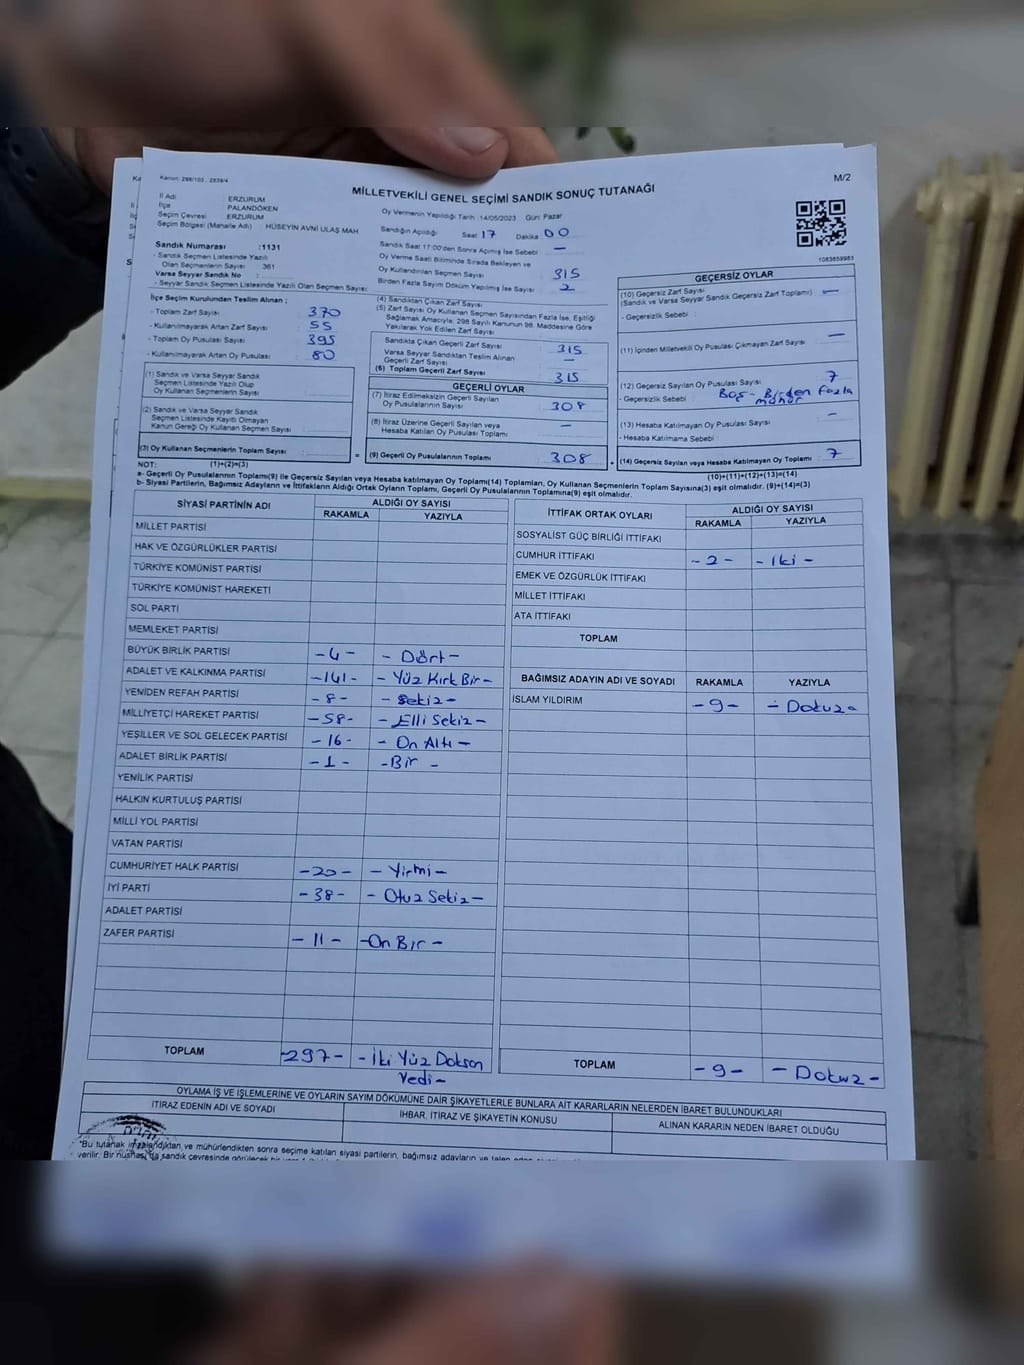 Kanun: 298/103 ; 2839/4
MİLLETVEKİLİ GENEL SEÇİMİ SANDIK SONUÇ TUTANAĞI
M/2
İl Adı ERZURUM
İlçe PALANDÖKEN
Seçim Çevresi ERZURUM
Seçim Bölgesi (Mahalle Adı) : HÜSEYİN AVNİ ULAŞ MAH
Sandık Numarası :1131
- Sandık Seçmen Listesinde Yazılı
Olan Seçmenlerin Sayısı 361
Varsa Seyyar Sandık No :
- Seyyar Sandık Seçmen Listesinde Yazılı Olan Seçmen Sayısı
Oy Vermenin Yapıldığı Tarih :14/05/2023 Gün: Pazar
Sandığın Açıldığı Saat 17 Dakika 00
Sandık Saat 17:00'den Sonra Açılmış İse Sebebi —
Oy Verme Saati Bitiminde Sırada Bekleyen ve
Oy Kullandırılan Seçmen Sayısı 315
Birden Fazla Sayım Döküm Yapılmış İse Sayısı 2
1083659983
İlçe Seçim Kurulundan Teslim Alınan ;
- Toplam Zarf Sayısı : 370
- Kullanılmayarak Artan Zarf Sayısı : 55
- Toplam Oy Pusulası Sayısı : 395
- Kullanılmayarak Artan Oy Pusulası : 80
(1) Sandık ve Varsa Seyyar Sandık
Seçmen Listesinde Yazılı Olup
Oy Kullanan Seçmenlerin Sayısı
(2) Sandık ve Varsa Seyyar Sandık
Seçmen Listesinde Kayıtlı Olmayan
Kanun Gereği Oy Kullanan Seçmen Sayısı
(3) Oy Kullanan Seçmenlerin Toplam Sayısı
(1)+(2)=(3)
(4) Sandıktan Çıkan Zarf Sayısı
(5) Zarf Sayısı Oy Kullanan Seçmen Sayısından Fazla İse, Eşitliği
Sağlamak Amacıyla; 298 Sayılı Kanunun 98. Maddesine Göre
Yakılarak Yok Edilen Zarf Sayısı
Sandıkta Çıkan Geçerli Zarf Sayısı 315
Varsa Seyyar Sandıktan Teslim Alınan
Geçerli Zarf Sayısı —
(6) Toplam Geçerli Zarf Sayısı 315
GEÇERLİ OYLAR
(7) İtiraz Edilmeksizin Geçerli Sayılan
Oy Pusulalarının Sayısı 308
(8) İtiraz Üzerine Geçerli Sayılan veya
Hesaba Katılan Oy Pusulası Toplamı —
= (9) Geçerli Oy Pusulalarının Toplamı 308
GEÇERSİZ OYLAR
(10) Geçersiz Zarf Sayısı
(Sandık ve Varsa Seyyar Sandık Geçersiz Zarf Toplamı) —
- Geçersizlik Sebebi :
(11) İçinden Milletvekili Oy Pusulası Çıkmayan Zarf Sayısı —
(12) Geçersiz Sayılan Oy Pusulası Sayısı 7
- Geçersizlik Sebebi : Boş - Birden fazla
mühür
(13) Hesaba Katılmayan Oy Pusulası Sayısı —
- Hesaba Katılmama Sebebi :
+ (14) Geçersiz Sayılan veya Hesaba Katılmayan Oy Toplamı : 7
(10)+(11)+(12)+(13)=(14)
NOT:
a- Geçerli Oy Pusulalarının Toplamı(9) ile Geçersiz Sayılan veya Hesaba katılmayan Oy Toplamı(14) Toplamları, Oy Kullanan Seçmenlerin Toplam Sayısına(3) eşit olmalıdır. (9)+(14)=(3)
b- Siyasi Partilerin, Bağımsız Adayların ve İttifakların Aldığı Ortak Oyların Toplamı, Geçerli Oy Pusulalarının Toplamına(9) eşit olmalıdır.
SİYASİ PARTİNİN ADI ALDIĞI OY SAYISI
RAKAMLA YAZIYLA
MİLLET PARTİSİ
HAK VE ÖZGÜRLÜKLER PARTİSİ
TÜRKİYE KOMÜNİST PARTİSİ
TÜRKİYE KOMÜNİST HAREKETİ
SOL PARTİ
MEMLEKET PARTİSİ
BÜYÜK BİRLİK PARTİSİ -4- - Dört -
ADALET VE KALKINMA PARTİSİ -141- - Yüz Kırk Bir -
YENİDEN REFAH PARTİSİ -8- - Sekiz -
MİLLİYETÇİ HAREKET PARTİSİ -58- - Elli Sekiz -
YEŞİLLER VE SOL GELECEK PARTİSİ -16- - On Altı -
ADALET BİRLİK PARTİSİ -1- -Bir -
YENİLİK PARTİSİ
HALKIN KURTULUŞ PARTİSİ
MİLLİ YOL PARTİSİ
VATAN PARTİSİ
CUMHURİYET HALK PARTİSİ -20- - Yirmi -
İYİ PARTİ -38- - Otuz Sekiz -
ADALET PARTİSİ
ZAFER PARTİSİ - 11 - -On Bir -
TOPLAM -297- - İki Yüz Doksan
Yedi -
İTTİFAK ORTAK OYLARI ALDIĞI OY SAYISI
RAKAMLA YAZIYLA
SOSYALİST GÜÇ BİRLİĞİ İTTİFAKI
CUMHUR İTTİFAKI -2- - İki -
EMEK VE ÖZGÜRLÜK İTTİFAKI
MİLLET İTTİFAKI
ATA İTTİFAKI
TOPLAM
BAĞIMSIZ ADAYIN ADI VE SOYADI RAKAMLA YAZIYLA
İSLAM YILDIRIM -9- - Dokuz -
TOPLAM -9- - Dokuz -
OYLAMA İŞ VE İŞLEMLERİNE VE OYLARIN SAYIM DÖKÜMÜNE DAİR ŞİKAYETLERLE BUNLARA AİT KARARLARIN NELERDEN İBARET BULUNDUKLARI
İTİRAZ EDENİN ADI VE SOYADI İHBAR, İTİRAZ VE ŞİKAYETİN KONUSU ALINAN KARARIN NEDEN İBARET OLDUĞU
*Bu tutanak imzalandıktan ve mühürlendikten sonra seçime katılan siyasi partilerin, bağımsız adayların ve
verilir. Bir nüshası da sandık çevresinde